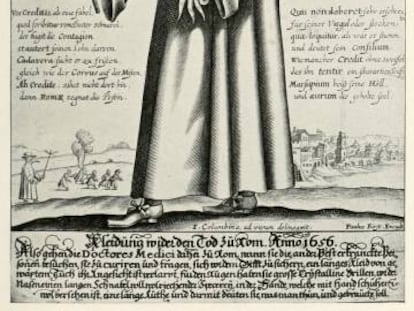 Vos Creditis, als eine fabel,
quod scribitur vom Doctor Schnabel,
der fugit die Contagion
et aufert seinen Lohn darvon
Cadavera sucht er zu fristen
gleich wie der Corvus auf der Misten
Ah Credite, sihet nicht dort hin
dann Romæ regnat die Pestin.
Quis non deberet sehr erschrecken
für seiner Virgul oder stecken,
qua loquitur, als wär er stumm
und deutet sein Consilium
Wie mancher Credit ohne zweiffel
das ihn tentir ein schwartzer Teuffel
Marsupium heist seine Höll
und aurum die geholte seel.
I. Columbina, ad vivum delineavit. Paulus Fürst Excud
Kleidung wider den Tod zu Rom. Anno 1656.
Also gehen die Doctores Medici daher zu Rom, wann sie die ander Pest erkranckte Per-
sonen besuchen, sie zu curiren und tragen, sich widern Gifft zu sichern, ein langes Kleid von ge-
wäxtem Tuch ihr Angesicht ist verlarvt, für den Augen haben sie grosse Crystalline Brillen, wider
Nasen einen langen Schnabel voll wolriechender Specerey, in der Hände welche mit Handschuher
wol versehen ist, eine lange Ruthe und darmit deuten sie was man thun, und gebrauchẽ soll.